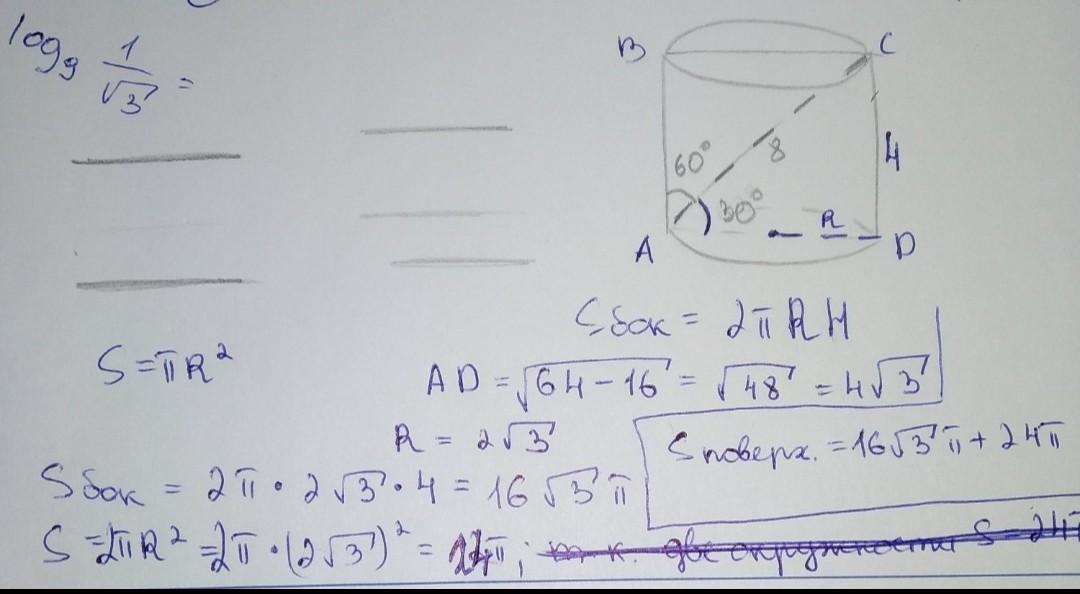 log₉ 1/√3 =
B C
60° 8 4
30° R
A D
S бок = 2πRH
S = πR²
AD = √64-16 = √48 = 4√3
R = 2√3
S поверх. = 16√3 π + 24π
S бок = 2π · 2√3 · 4 = 16√3 π
S = 2πR² = 2π · (2√3)² = 24π; т.к. две окружности S = 24π